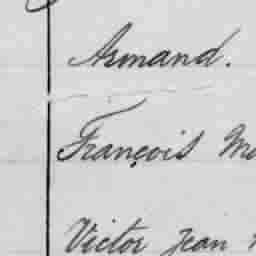 Armand.
François
Victor Jean